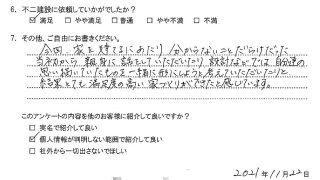 6. 不二建設に依頼していかがでしたか？
☑満足 □やや満足 □普通 □やや不満 □不満
7. その他、ご自由にお書きください。
今回、家を建てるにあたり分からないことだらけだった
当初から親身に話をしていただいたり、設計などでは自分達の
思い描いていたものを一緒に形にしようと考えていただいたりと
結果とても満足度の高い家づくりができたと感じています。
このアンケートの内容を他のお客様に紹介して良いですか？
□実名で紹介して良い
☑個人情報が判明しない範囲で紹介して良い
□社外から一切出さないでほしい
2021年11月22日